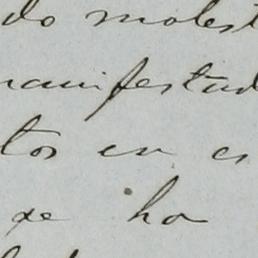 do molest
manifestad
tos en es
se ha